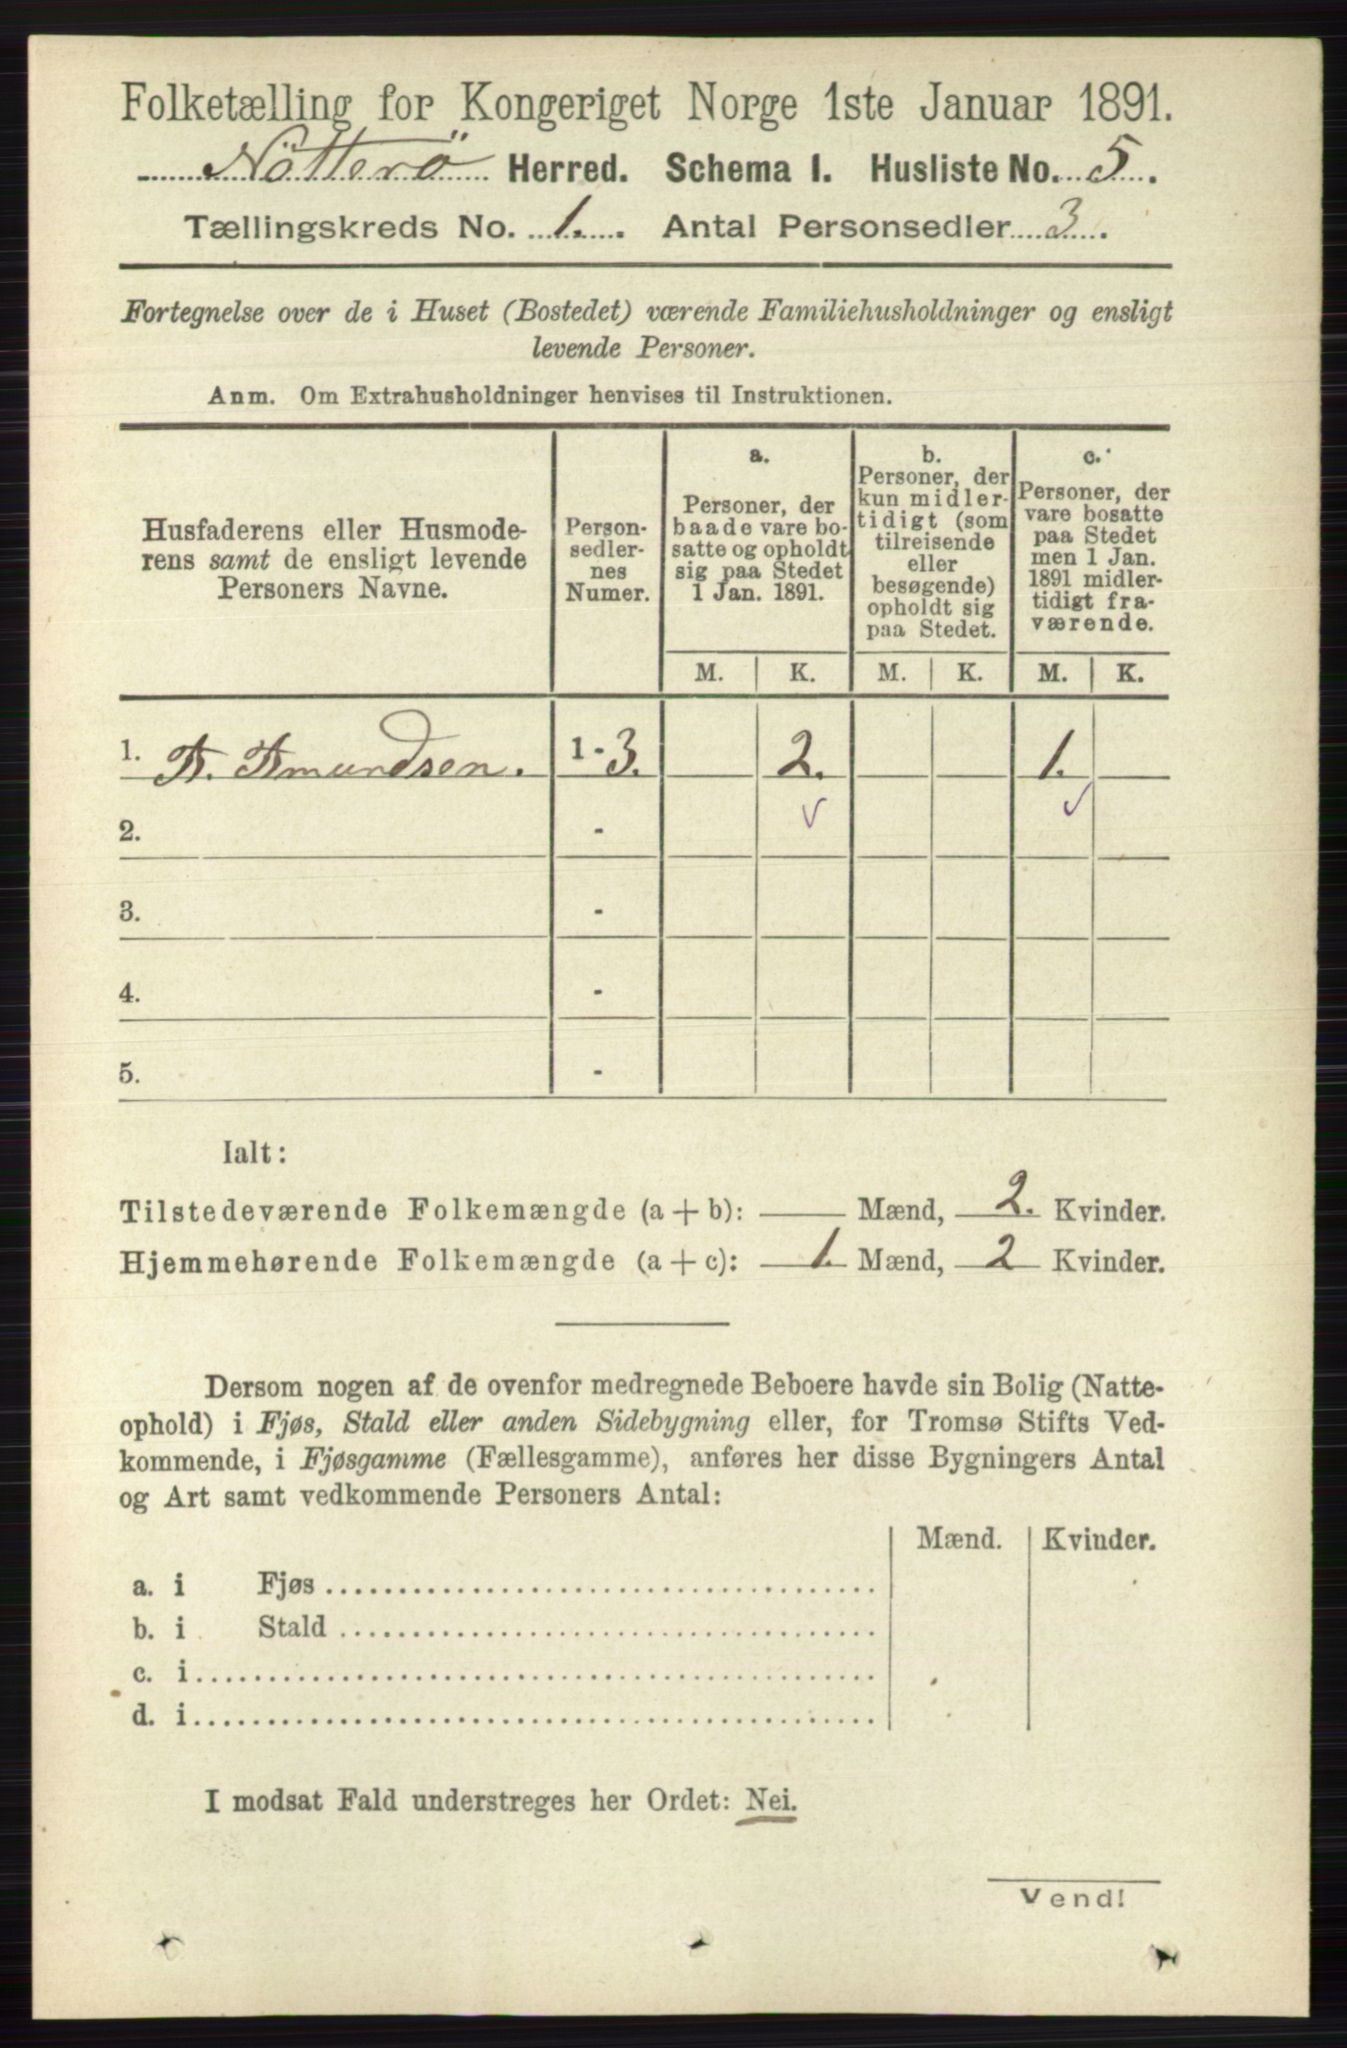 Folketælling for Kongeriget Norge 1ste Januar 1891.
Nötterö Herred. Schema I. Husliste No. 5.
Tællingskreds No. 1. Antal Personsedler 3.
Fortegnelse over de i Huset (Bostedet) værende Familiehusholdninger og ensligt
levende Personer.
Anm. Om Extrahusholdninger henvises til Instruktionen.
Husfaderens eller Husmode-
rens samt de ensligt levende
Personers Navne.
Person-
sedler-
nes
Numer.
a.
Personer, der
baade vare bo-
satte og opholdt
sig paa Stedet
1 Jan. 1891.
b.
Personer, der
kun midler-
tidigt (som
tilreisende
eller
besøgende)
opholdt sig
paa Stedet.
c.
Personer, der
vare bosatte
paa Stedet
men 1 Jan.
1891 midler-
tidigt fra-
værende.
M. K. M. K. M. K.
1. A. Amundsen. 1 - 3. 2. 1.
2. -
3. -
4. -
5. -
Ialt:
Tilstedeværende Folkemængde (a + b): — Mænd, 2. Kvinder.
Hjemmehørende Folkemængde (a + c): 1. Mænd, 2 Kvinder.
Dersom nogen af de ovenfor medregnede Beboere havde sin Bolig (Natte-
ophold) i Fjøs, Stald eller anden Sidebygning eller, for Tromsø Stifts Ved-
kommende, i Fjøsgamme (Fællesgamme), anføres her disse Bygningers Antal
og Art samt vedkommende Personers Antal:
Mænd. Kvinder.
a. i Fjøs
b. i Stald
c. i
d. i
I modsat Fald understreges her Ordet: Nei.
Vend!